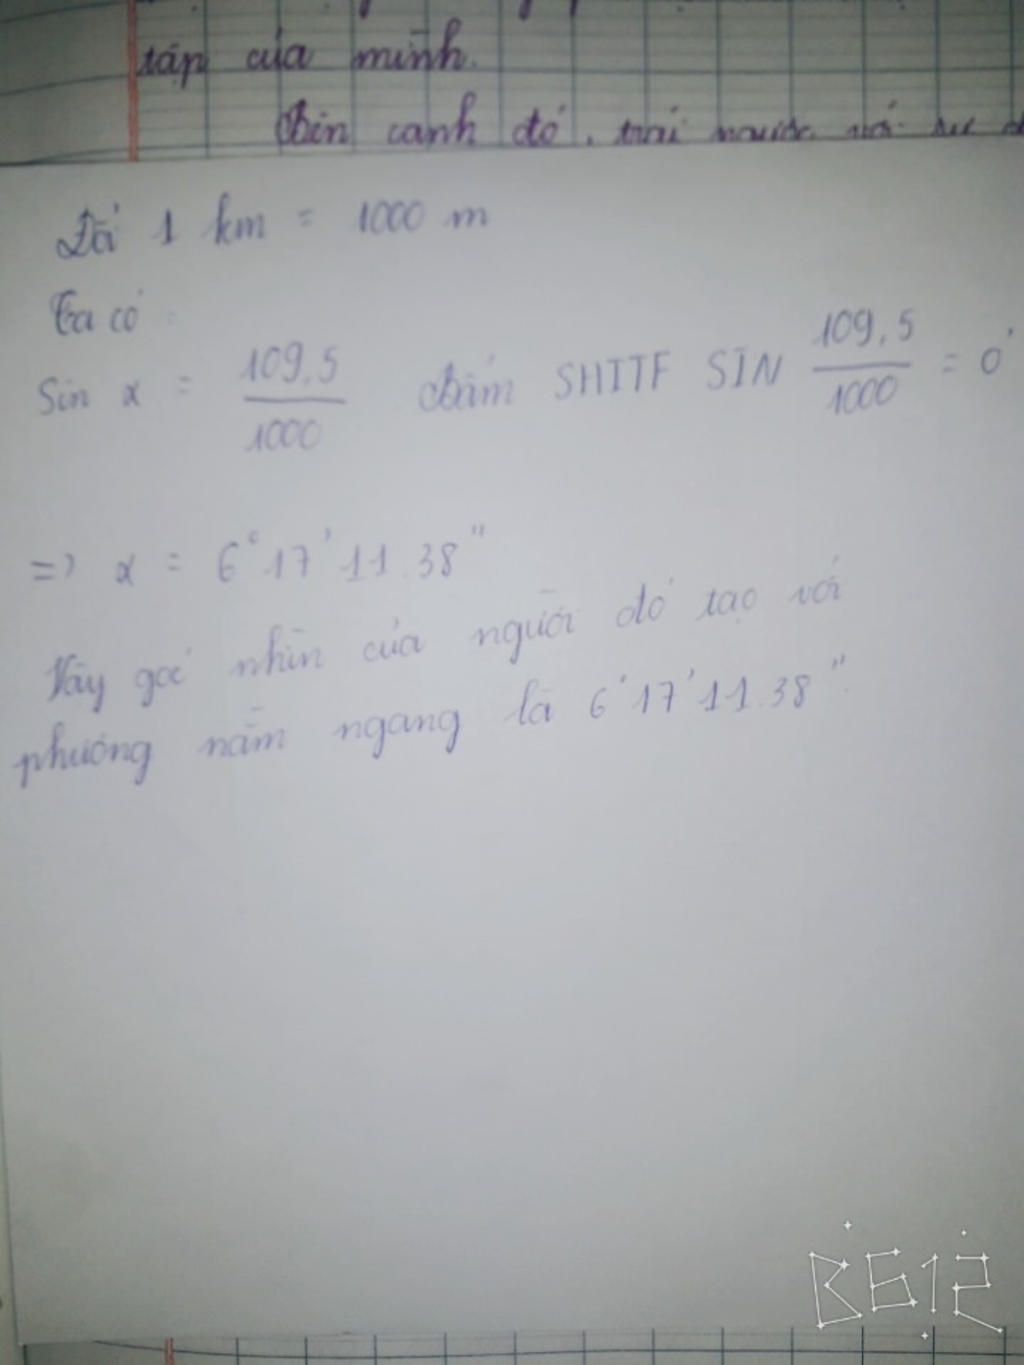 tập của minh.
Bên cạnh đó, trái
Đổi 1 km = 1000 m
Ta có:
Sin α = 109,5/1000 bấm SHITF SIN 109,5/1000 = o'
=> α = 6°17'11.38"
Vậy góc nhìn của người đó tạo với
phương nằm ngang là 6°17'11.38"
B612